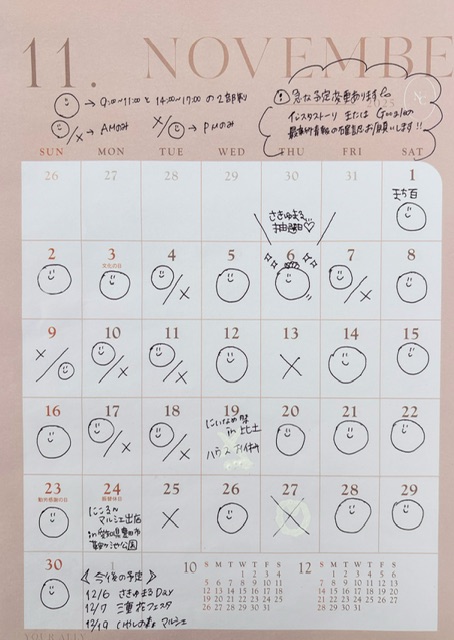 11. NOVEMBER
→ 9:00~11:00 と 14:00~17:00 の 2部制
→ AMのみ
→ PMのみ
! 急な予定変更あります
インスタストーリー または Googleの
最新情報の確認お願いします!!
2025
SUN MON TUE WED THU FRI SAT
26 27 28 29 30 31 1
さきゅまる
抽選日♡
まち百
2 3 4 5 6 7 8
文化の日
9 10 11 12 13 14 15
16 17 18 19 20 21 22
にいなめ祭
in 比土
ハウス お休み
23 24 25 26 27 28 29
勤労感謝の日 振替休日
マルシェ出店
30 1
《今後の予定》
12/6 さきゅまる Day
12/7 三重 花フェスタ
12/19 マルシェ
10 S M T W T F S
1 2 3 4
5 6 7 8 9 10 11
12 13 14 15 16 17 18
19 20 21 22 23 24 25
26 27 28 29 30 31
12 S M T W T F S
1 2 3 4 5 6
7 8 9 10 11 12 13
14 15 16 17 18 19 20
21 22 23 24 25 26 27
28 29 30 31
YOUR ALLY